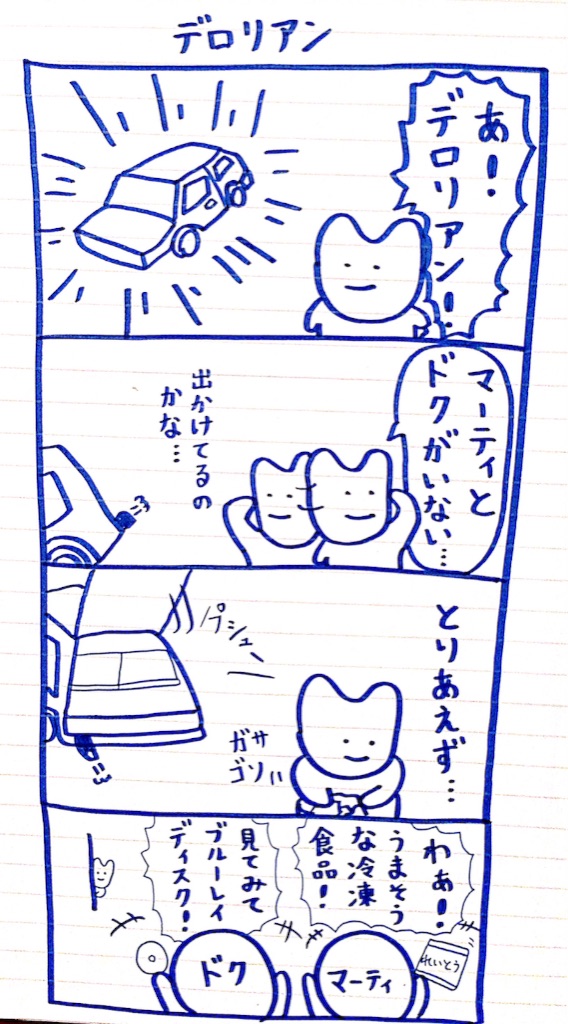 デロリアン
あ！
デロリアン！
マーティと
ドクがいない…
出かけてるの
かな…
とりあえず…
プシュー
ガサ
ゴソ
わぁ！
うまそう
な冷凍
食品！
見てみて
ブルーレイ
ディスク！
れいとう
マーティ
ドク